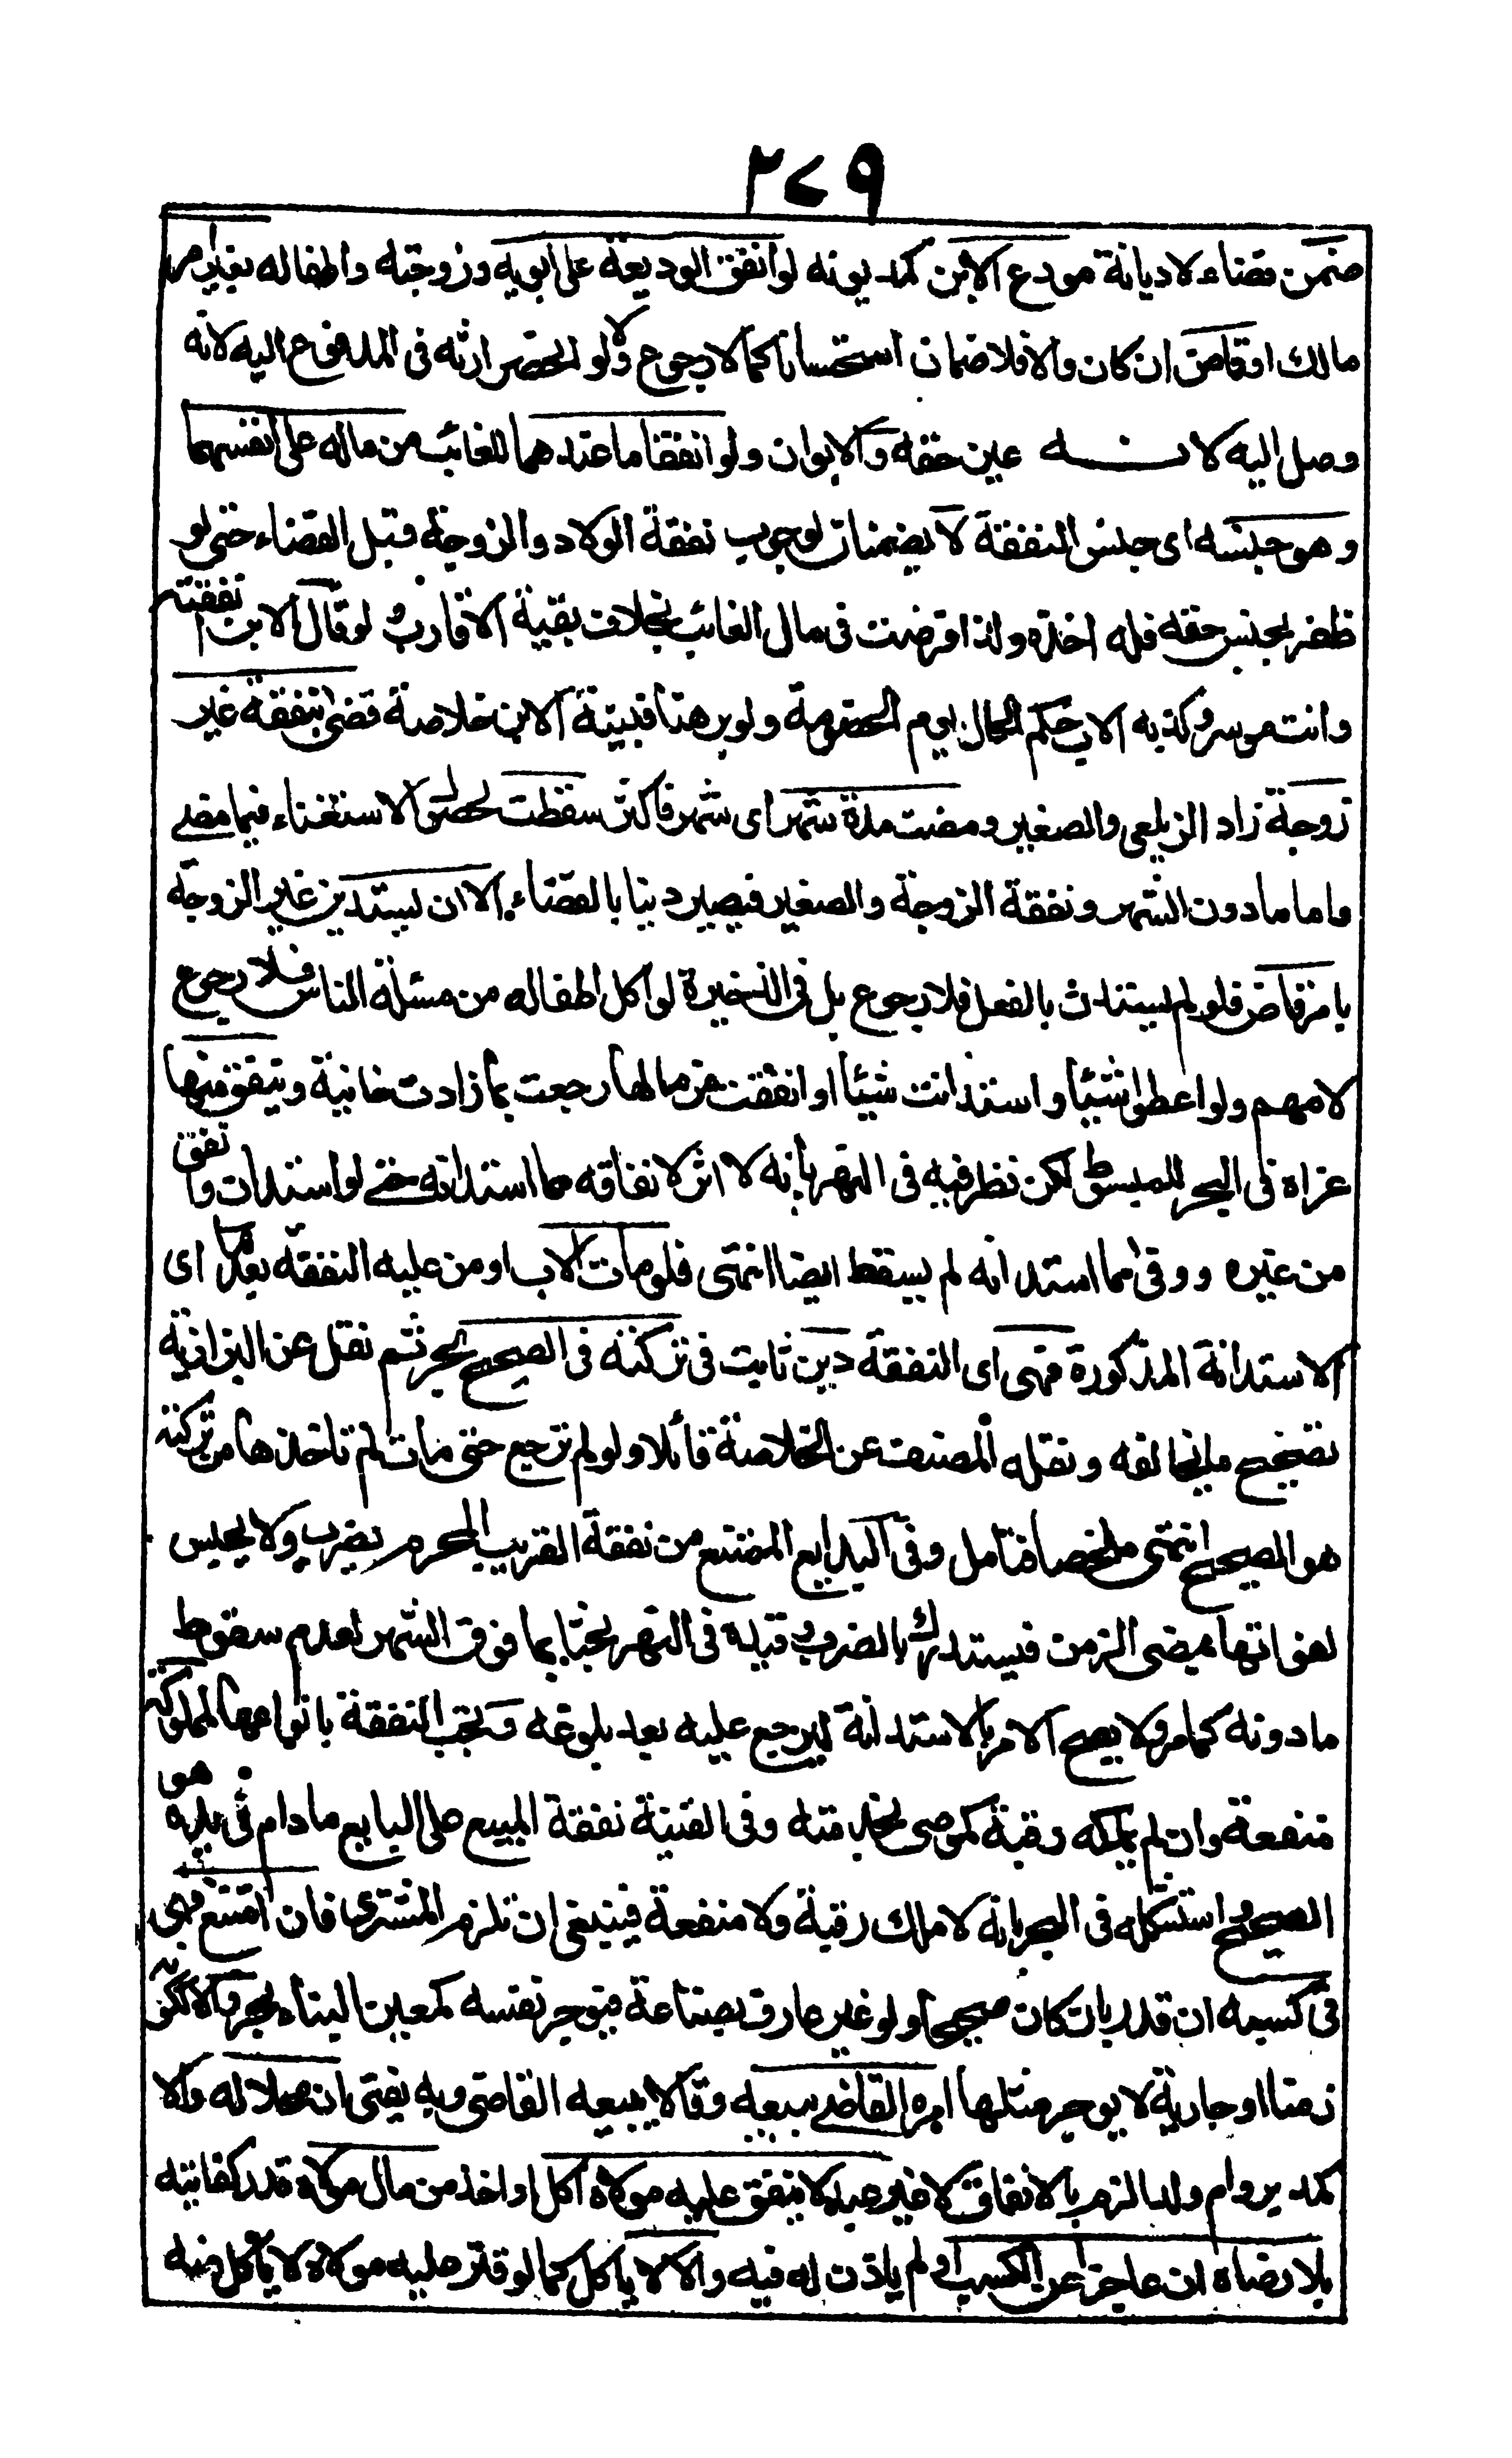 ٢٧٩
ضمن قضاء لا ديانة مودع الابن كمديونه لو انفق الوديعة على ابويه وزوجته واطفاله بغير امر
مالك او قاض ان كان والا فلا ضمان استحسانا كما لا رجوع ولا لو انحصر ارثه في المدفوع اليه لانه
وصل اليه لانه عين حقه والابوان ولو انفقا ما عندهما للغائب من ماله على انفسهما
وهو جنسه اى جنس النفقة لا يضمنان لوجوب نفقة الولاد والزوجة قبل القضاء حتى لو
ظفر بجنس حقه فله اخذه ولذا فرضت في مال الغائب بخلاف بقية الاقارب ولو قال الابن انفقته
وانت موسر وكذبه الاب حكم الحال يوم الخصومة ولو برهنا فبينة الابن خلاصة قضى بنفقة غير
زوجة زاد الزيلعي والصغير ومضت مدة شهر اى شهر فاكثر سقطت لحصول الاستغناء فيما مضى
واما ما دون الشهر ونفقة الزوجة والصغير فيصير دينا بالقضاء الا ان يستدين غير الزوجة
بامر قاض فلو لم يستدن بالفعل فلا رجوع بل في الذخيرة لو اكل اطفاله من مسئلة الناس فلا رجوع
لامهم ولو اعطوا شيئا واستدانت شيئا او انفقت من مالها رجعت بما زادت خانية وينفق منها
عزاه في البحر للمبسوط لكن نظر فيه في النهر بانه لا اثر لانفاقه مما استدانه حتى لو استدان وانفق
من غيره ووفى مما استدانه لم يسقط ايضا انتهى فلو مات الاب او من عليه النفقة بعدها اى
الاستدانة المذكورة فهى اى النفقة دين ثابت في تركته في الصحيح بحر ثم نقل عن البزازية
تصحيح ما يخالفه ونقله المصنف عن الخلاصة قائلا ولو لم ترجع حتى مات لم تاخذها من تركته
هو الصحيح انتهى ملخصا فتامل وفي البدايع الممتنع من نفقة القريب المحرم يضرب ولا يحبس
لفواتها بمضى الزمن فيستدرك بالضرب وقيده في النهر بحثا بما فوق الشهر لعدم سقوط
ما دونه كما مر ولا يصح الامر بالاستدانة ليرجع عليه بعد بلوغه وتجب النفقة بانواعها لمملوكه
منفعة وان لم يملكه رقبة كموصى بخدمته وفي القنية نفقة المبيع على البايع ما دام في يده هو
الصحيح واستشكله في البحر بانه لا ملك رقبة ولا منفعة فينبغي ان تلزم المشترى فان امتنع فهى
في كسبه ان قدر بان كان صحيحا ولو غير عارف بصناعة فيوجر نفسه كمعين البناء بحر والا لكونه
زمنا او جارية لا يوجر مثلها امره القاضى ببيعه وقالا يبيعه القاضى وبه يفتى ان محلا له والا
كمدبر وام ولد الزم بالانفاق لا غير عبد لا ينفق عليه مولاه اكل او اخذ من مال مولاه قدر كفايته
بلا رضاه ان عاجز عن الكسب او لم ياذن له فيه والا لا ياكل كما لو قتر عليه مولاه لا ياكل منه